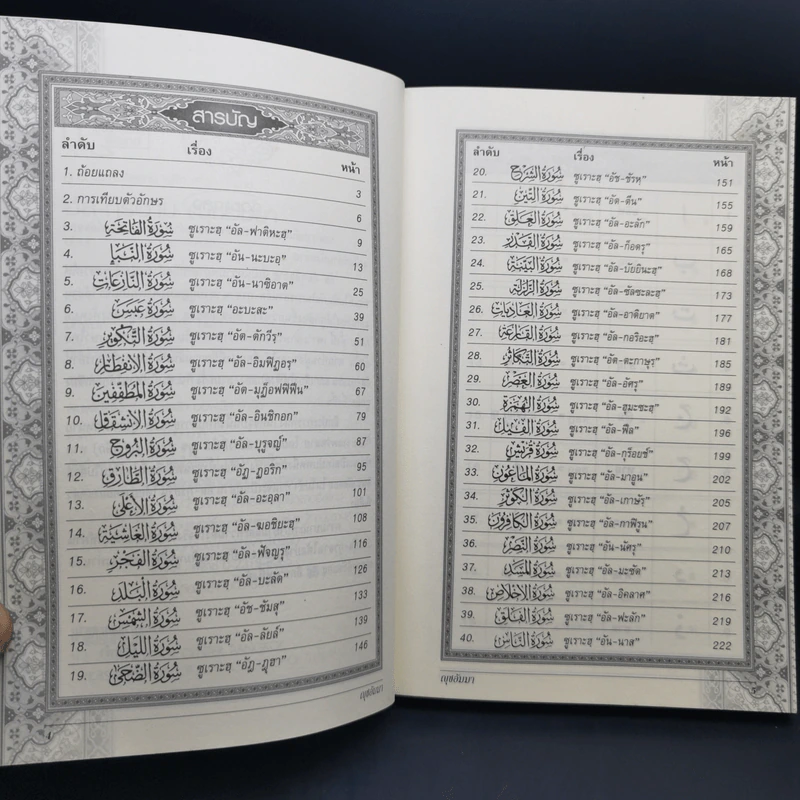 สารบัญ
ลำดับ เรื่อง หน้า
1. ถ้อยแถลง 3
2. การเทียบตัวอักษร 6
3. سُورَةُ الفَاتِحَة ซูเราะฮฺ “อัล-ฟาติหะฮฺ” 9
4. سُورَةُ النَّبَإِ ซูเราะฮฺ “อัน-นะบะอฺ” 13
5. سُورَةُ النَّازِعَات ซูเราะฮฺ “อัน-นาซิอาต” 25
6. سُورَةُ عَبَسَ ซูเราะฮฺ “อะบะสะ” 39
7. سُورَةُ التَّكْوِير ซูเราะฮฺ “อัต-ตักวีรฺ” 51
8. سُورَةُ الانفِطَار ซูเราะฮฺ “อัล-อิมฟิฏอรฺ” 60
9. سُورَةُ المُطَفِّفِين ซูเราะฮฺ “อัล-มุฏ็อฟฟิฟีน” 67
10. سُورَةُ الانشِقَاق ซูเราะฮฺ “อัล-อินชิกอก” 79
11. سُورَةُ البُرُوج ซูเราะฮฺ “อัล-บุรูจญ์” 87
12. سُورَةُ الطَّارِق ซูเราะฮฺ “อัฏ-ฏอริก” 95
13. سُورَةُ الأَعْلَى ซูเราะฮฺ “อัล-อะอฺลา” 101
14. سُورَةُ الغَاشِيَة ซูเราะฮฺ “อัล-ฆอชิยะฮฺ” 108
15. سُورَةُ الفَجْر ซูเราะฮฺ “อัล-ฟัจญรฺ” 116
16. سُورَةُ البَلَد ซูเราะฮฺ “อัล-บะลัด” 126
17. سُورَةُ الشَّمْس ซูเราะฮฺ “อัช-ชัมสฺ” 133
18. سُورَةُ اللَّيْل ซูเราะฮฺ “อัล-ลัยล์” 139
19. سُورَةُ الضُّحَى ซูเราะฮฺ “อัฎ-ฎุฮา” 146
ญุซอัมมา
ลำดับ เรื่อง หน้า
20. سُورَةُ الشَّرْح ซูเราะฮฺ “อัช-ชัรหฺ” 151
21. سُورَةُ التِّين ซูเราะฮฺ “อัต-ตีน” 155
22. سُورَةُ العَلَق ซูเราะฮฺ “อัล-อะลัก” 159
23. سُورَةُ القَدْر ซูเราะฮฺ “อัล-ก็อดรฺ” 165
24. سُورَةُ البَيِّنَة ซูเราะฮฺ “อัล-บัยยินะฮฺ” 168
25. سُورَةُ الزَّلْزَلَة ซูเราะฮฺ “อัล-ซัลซะละฮฺ” 173
26. سُورَةُ العَادِيَات ซูเราะฮฺ “อัล-อาดิยาต” 177
27. سُورَةُ القَارِعَة ซูเราะฮฺ “อัล-กอริอะฮฺ” 181
28. سُورَةُ التَّكَاثُر ซูเราะฮฺ “อัต-ตะกาษุรฺ” 185
29. سُورَةُ العَصْر ซูเราะฮฺ “อัล-อัศรฺ” 189
30. سُورَةُ الهُمَزَة ซูเราะฮฺ “อัล-ฮุมะซะฮฺ” 192
31. سُورَةُ الفِيل ซูเราะฮฺ “อัล-ฟีล” 196
32. سُورَةُ قُرَيْش ซูเราะฮฺ “อัล-กุร็อยช์” 199
33. سُورَةُ المَاعُون ซูเราะฮฺ “อัล-มาอูน” 202
34. سُورَةُ الكَوْثَر ซูเราะฮฺ “อัล-เกาษัรฺ” 205
35. سُورَةُ الكَافِرُون ซูเราะฮฺ “อัล-กาฟิรูน” 207
36. سُورَةُ النَّصْر ซูเราะฮฺ “อัน-นัศรฺ” 210
37. سُورَةُ المَسَد ซูเราะฮฺ “อัล-มะซัด” 213
38. سُورَةُ الإِخْلَاص ซูเราะฮฺ “อัล-อิคลาศ” 216
39. سُورَةُ الفَلَق ซูเราะฮฺ “อัล-ฟะลัก” 219
40. سُورَةُ النَّاس ซูเราะฮฺ “อัน-นาส” 222
ญุซอัมมา